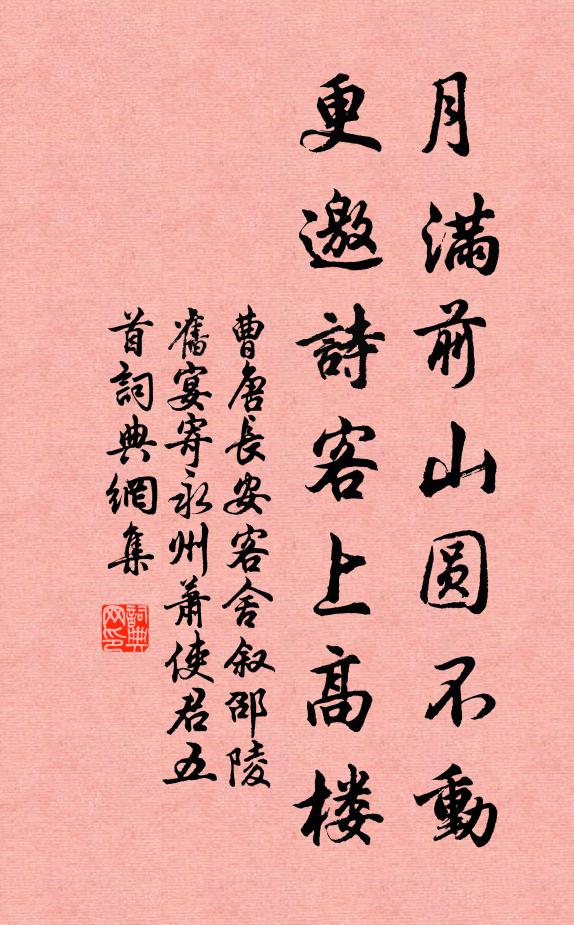 月满前山圆不動
更邀詩客上高楼
曹唐長安客舍叙邵陵
舊宴寄永州蕭使君五
首詞典網集
詞典网印